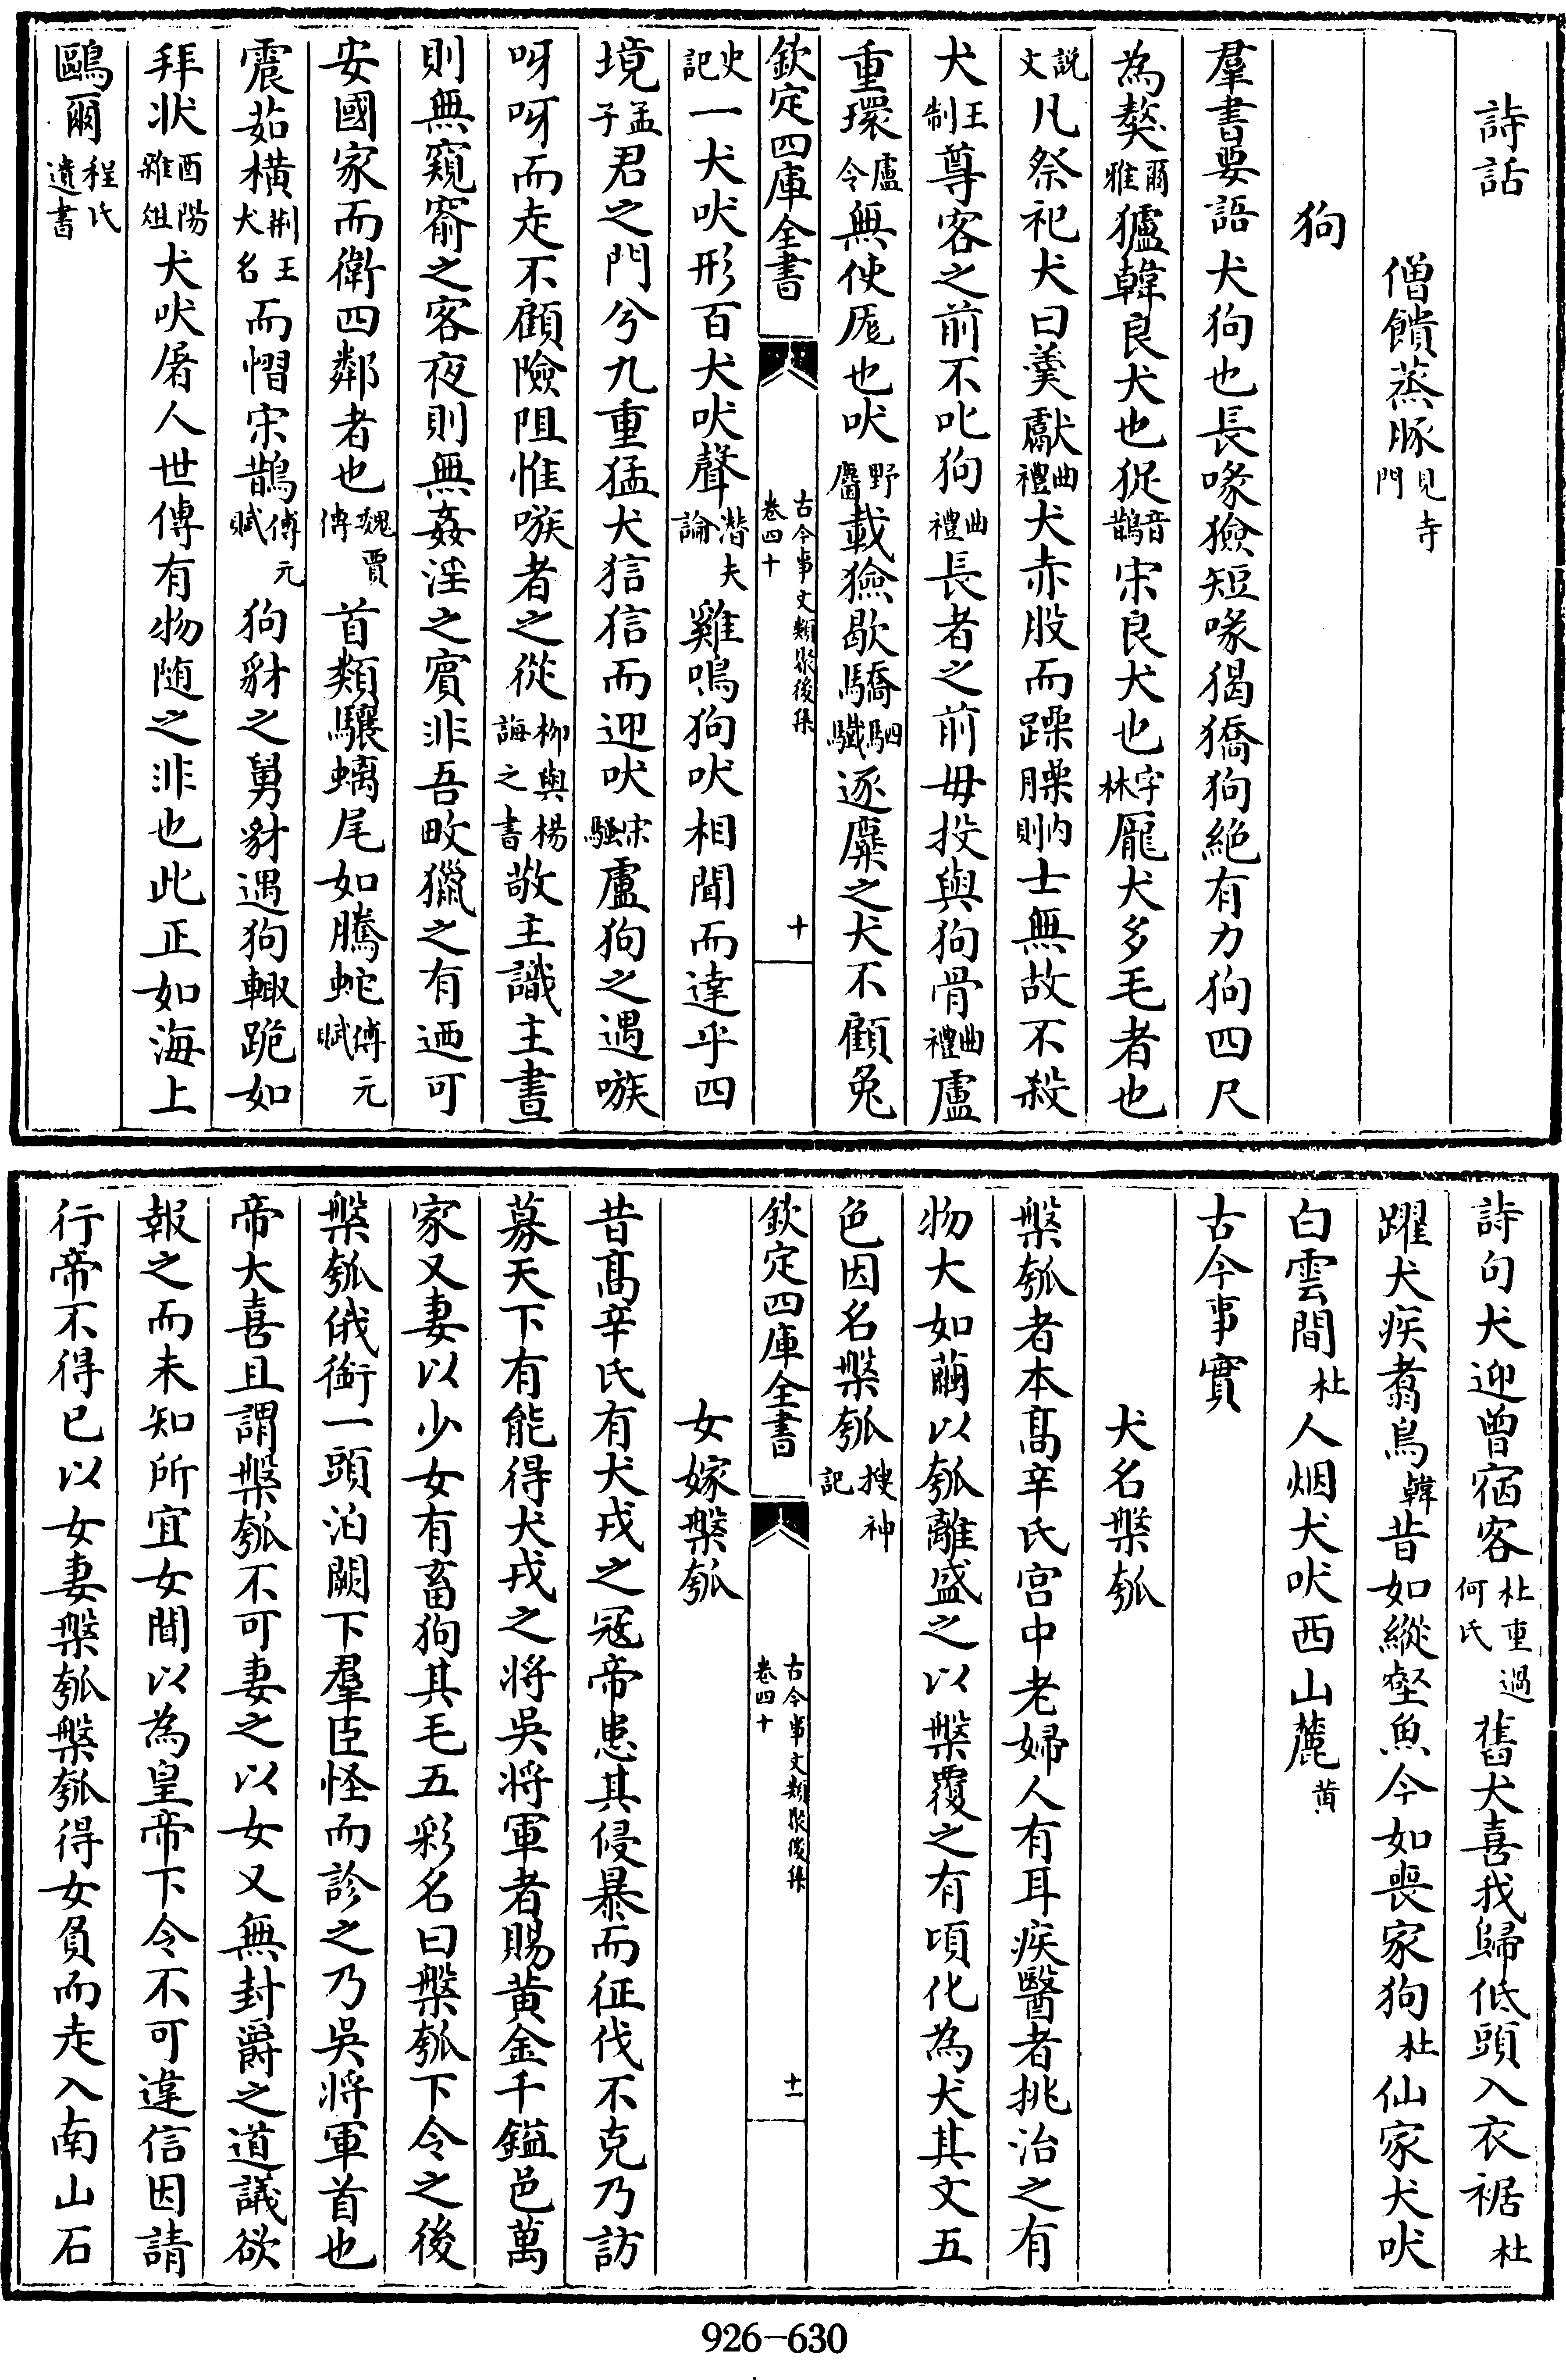 詩話
僧饋蒸豚見寺門
狗
羣書要語犬狗也長喙獫短喙猲獢狗絶有力狗四尺
為獒爾雅獹韓良犬也㹱音鵲宋良犬也字林厖犬多毛者也
説文凡祭祀犬曰羮獻曲禮犬赤股而躁臊内則士無故不殺
犬王制尊客之前不叱狗曲禮長者之前毋投與狗骨曲禮盧
重環盧令無使厖也吠野麕載獫歇驕駟驖逐麋之犬不顧兔
欽定四庫全書 古今事文類聚後集卷四十 十
史記一犬吠形百犬吠聲潛夫論雞鳴狗吠相聞而達乎四
境孟子君之門兮九重猛犬狺狺而迎吠宋騷盧狗之遇嗾
呀呀而走不顧險阻惟嗾者之從柳與楊誨之書敬主識主晝
則無窺窬之客夜則無姦淫之賓非吾畋獵之有迺可
安國家而衛四鄰者也魏賈傅首類驤螭尾如騰蛇傅元賦
震茹横荆王犬名而慴宋鵲傅元賦狗豺之舅豺遇狗輙跪如
拜状酉陽雜俎犬吠屠人世傳有物随之非也此正如海上
鷗爾程氏遺書
詩句犬迎曽宿客杜重過何氏舊犬喜我歸低頭入衣裾杜
躍犬疾翥鳥韓昔如縱壑魚今如喪家狗杜仙家犬吠
白雲間杜人烟犬吠西山麓黄
古今事實
犬名槃瓠
槃瓠者本髙辛氏宫中老婦人有耳疾醫者挑治之有
物大如繭以瓠離盛之以槃覆之有頃化為犬其文五
色因名槃瓠搜神記
欽定四庫全書 古今事文類聚後集卷四十 十一
女嫁槃瓠
昔髙辛氏有犬戎之冦帝患其侵暴而征伐不克乃訪
募天下有能得犬戎之將吳將軍者賜黄金千鎰邑萬
家又妻以少女有畜狗其毛五彩名曰槃瓠下令之後
槃瓠俄銜一頭泊闕下羣臣怪而診之乃吳將軍首也
帝大喜且謂槃瓠不可妻之以女又無封爵之道議欲
報之而未知所宜女聞以為皇帝下令不可違信因請
行帝不得已以女妻槃瓠槃瓠得女負而走入南山石
926-630